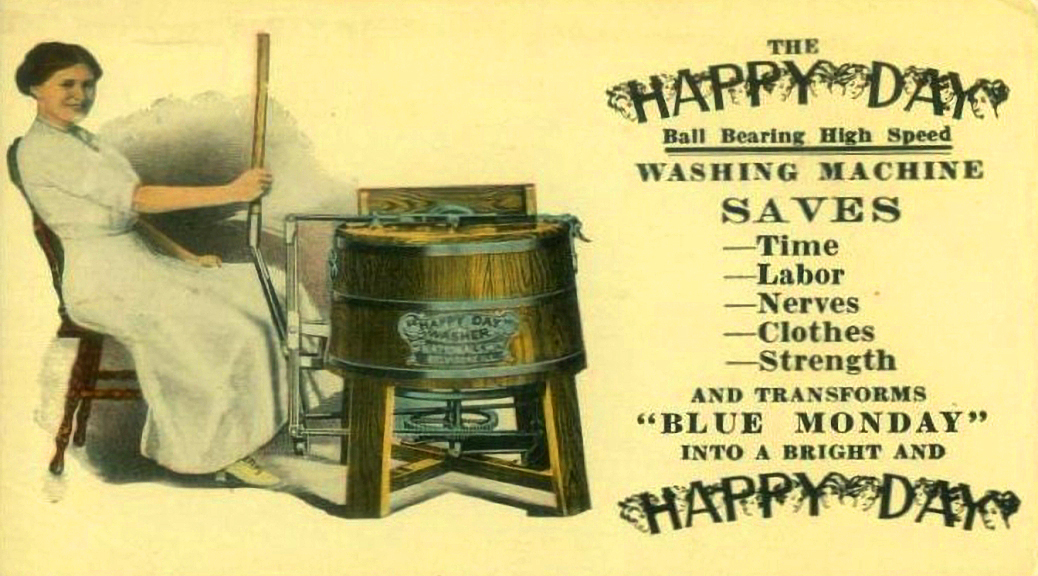 THE
HAPPY DAY
Ball Bearing High Speed
WASHING MACHINE
SAVES
—Time
—Labor
—Nerves
—Clothes
—Strength
AND TRANSFORMS
"BLUE MONDAY"
INTO A BRIGHT AND
HAPPY DAY
"HAPPY DAY"
WASHER